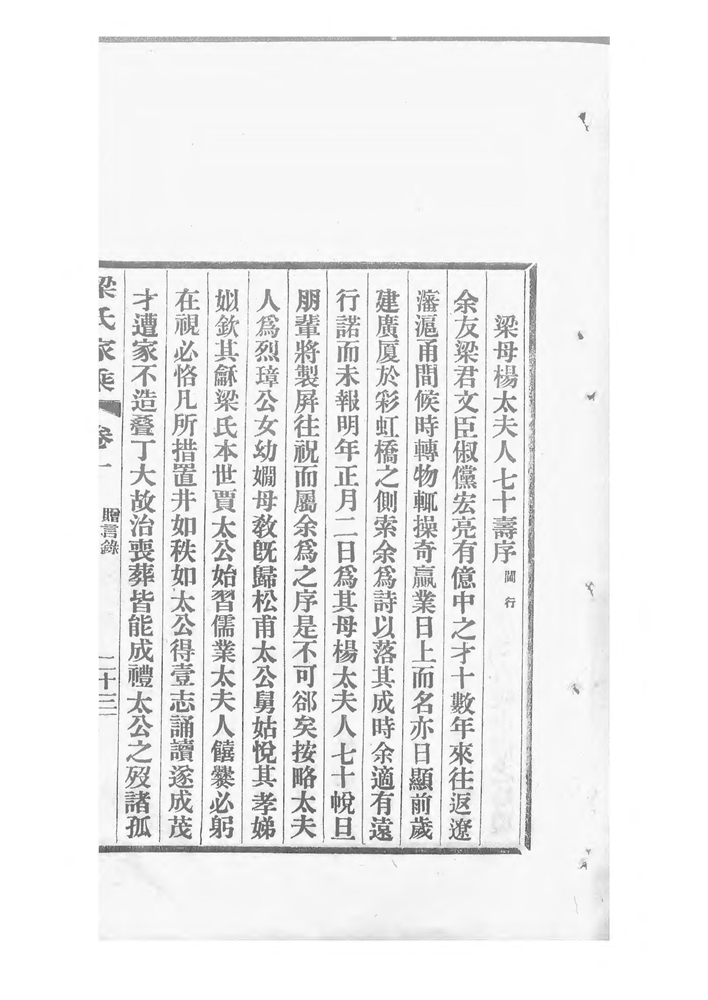 梁母楊太夫人七十壽序 闗行
余友梁君文臣俶儻宏亮有億中之才十數年來往返遼
瀋滬甬間候時轉物輒操奇贏業日上而名亦日顯前歲
建廣厦於彩虹橋之側索余爲詩以落其成時余適有遠
行諾而未報明年正月二日爲其母楊太夫人七十帨旦
朋輩將製屏往祝而屬余爲之序是不可郤矣按略太夫
人爲烈璋公女幼嫺母教旣歸松甫太公舅姑悅其孝娣
姒欽其龢梁氏本世賈太公始習儒業太夫人饎爨必躬
在視必恪凡所措置井如秩如太公得壹志誦讀遂成茂
才遭家不造疊丁大故治喪葬皆能成禮太公之歿諸孤
梁氏家乘 卷一 贈言錄 二十三